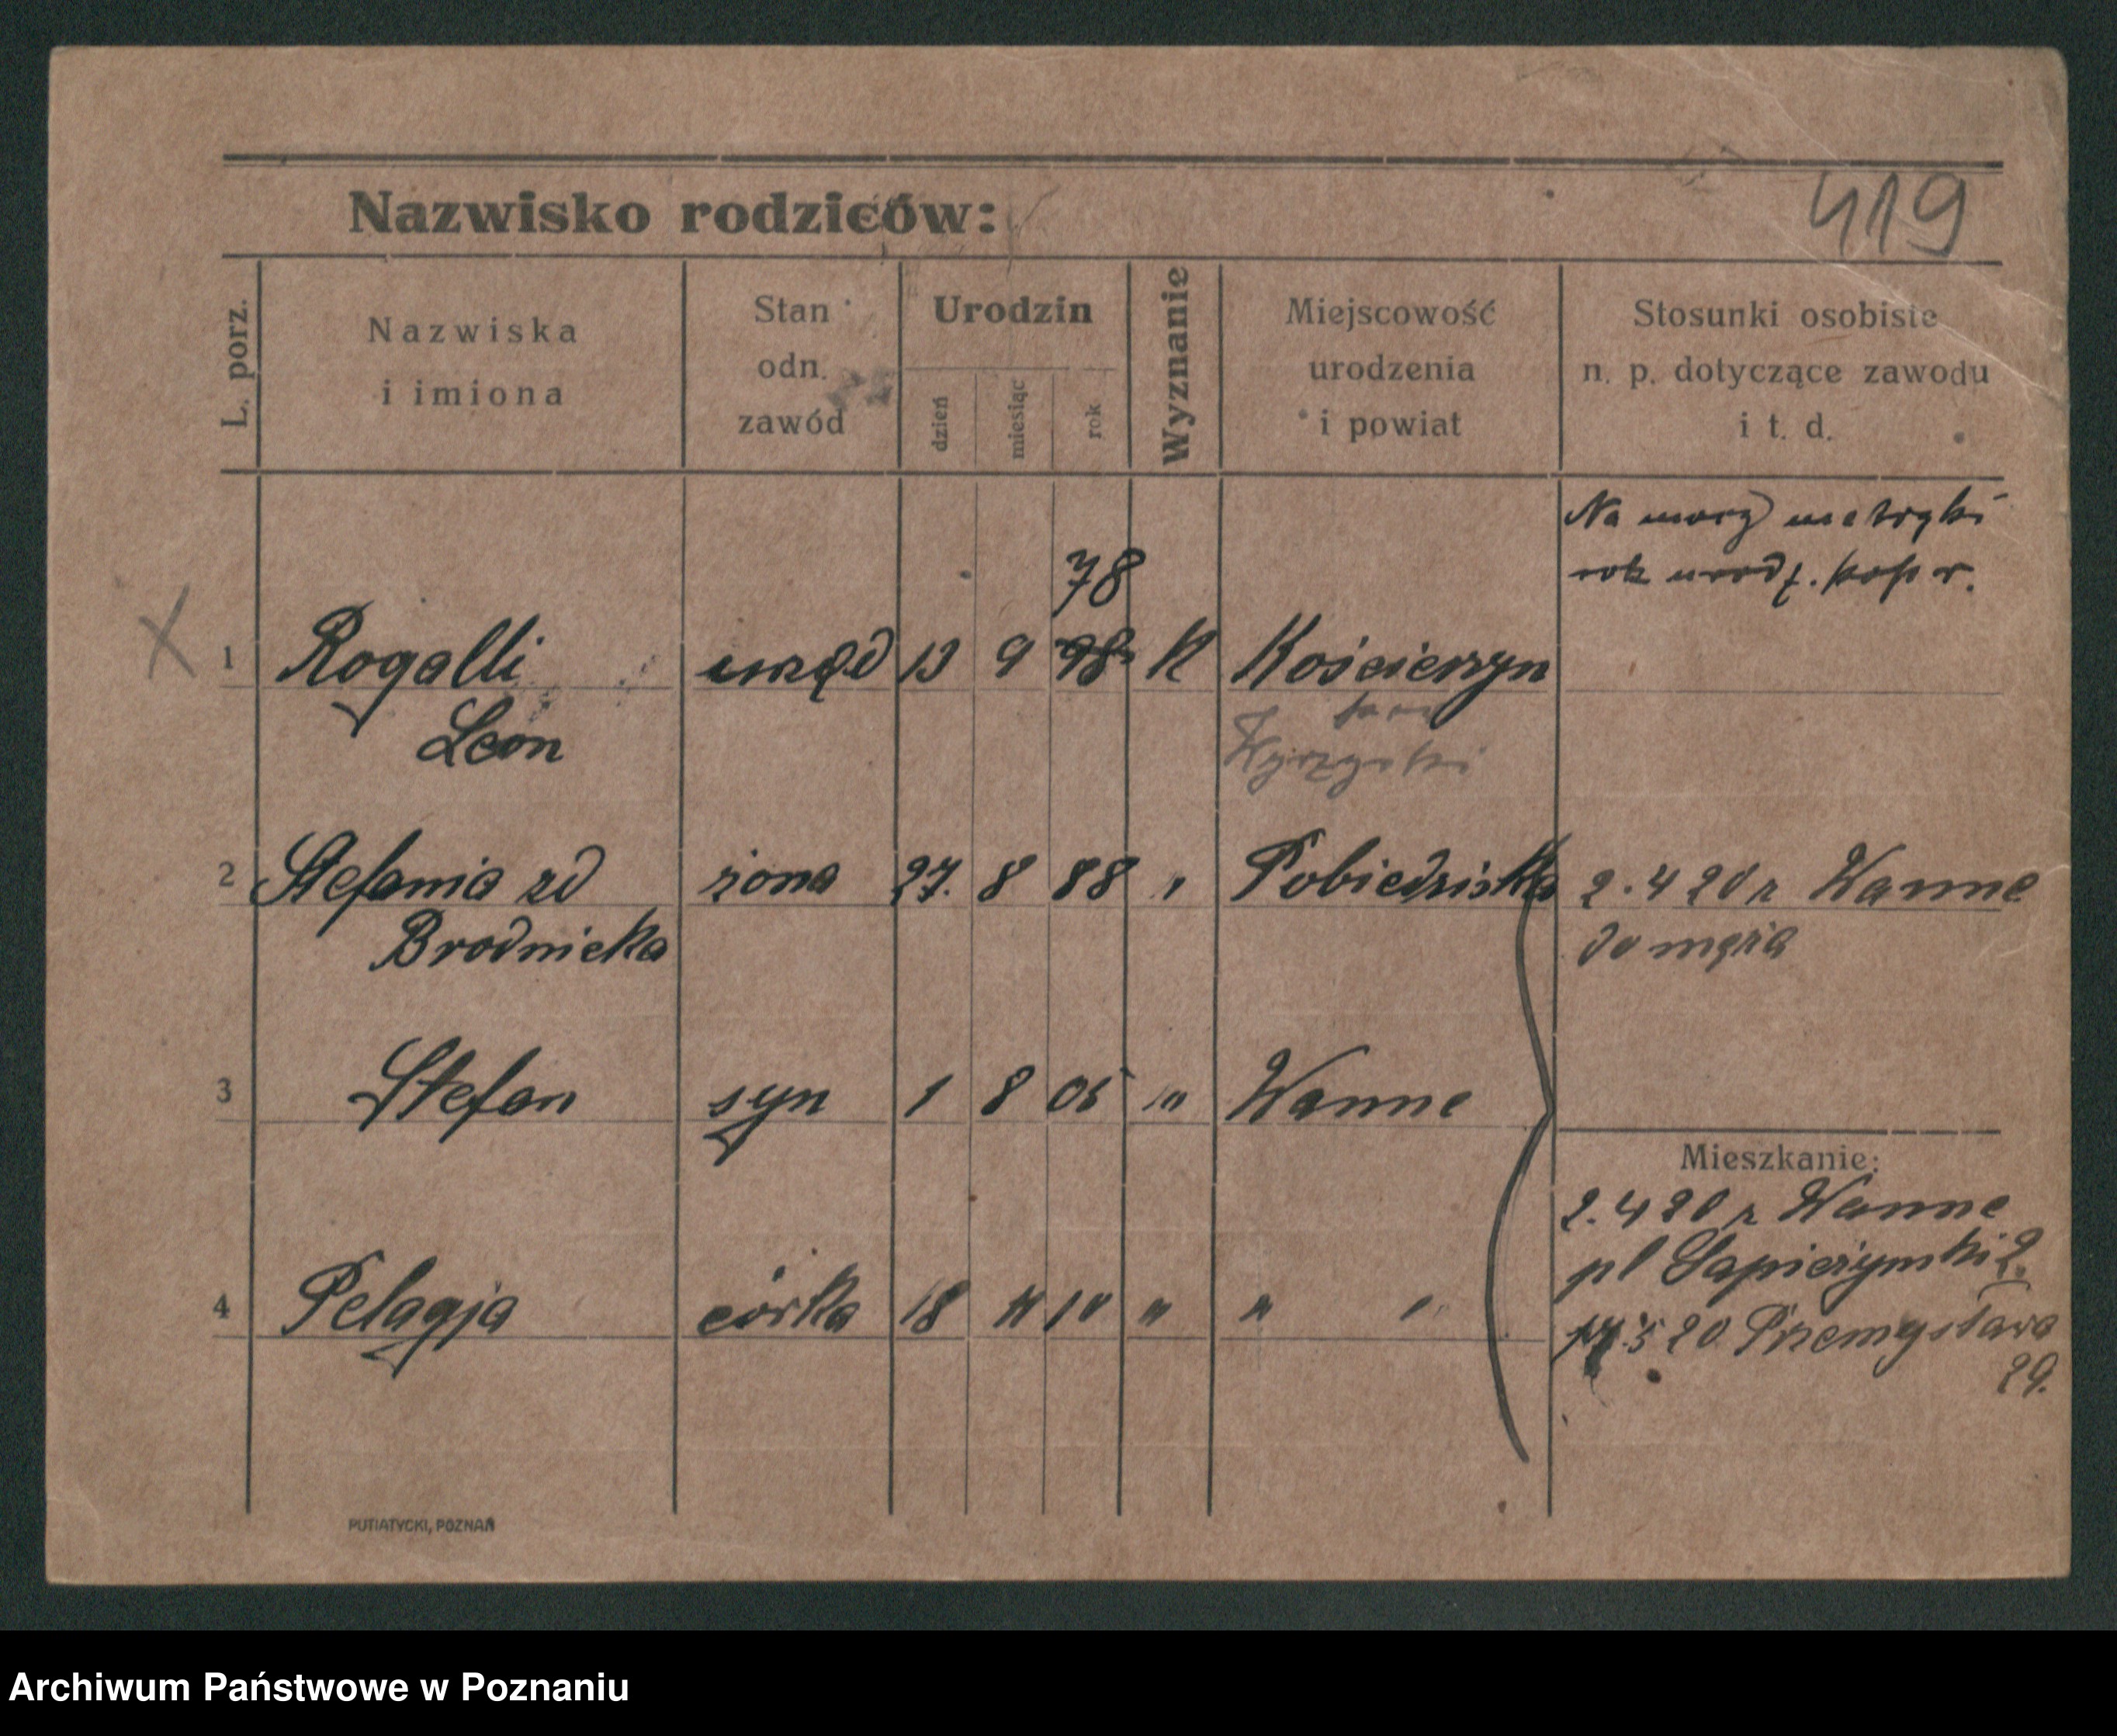 419
Nazwisko rodziców:
L. porz.
Nazwiska
i imiona
Stan
odn.
zawód
Urodzin
dzień
miesiąc
rok
Wyznanie
Miejscowość
urodzenia
i powiat
Stosunki osobiste
n. p. dotyczące zawodu
i t. d.
Na mocy metryki
rok urodz. popr.
78
1 Rogalli urzęd 13 9 98 K Kościerzyn
Leon
pow
Wyrzyski
2 Stefania zd żona 27. 8 88 " Pobiedziska 2.4 20 z Wanne
Brodnicka do męża
3 Stefan syn 1 8 05 " Wanne
Mieszkanie:
2.4 20 z Wanne
pl Sapieżyński 2.
4 Pelagja córka 18 11 10 " " " 5 20 Przemysława
29.
PUTIATYCKI, POZNAŃ
Archiwum Państwowe w Poznaniu